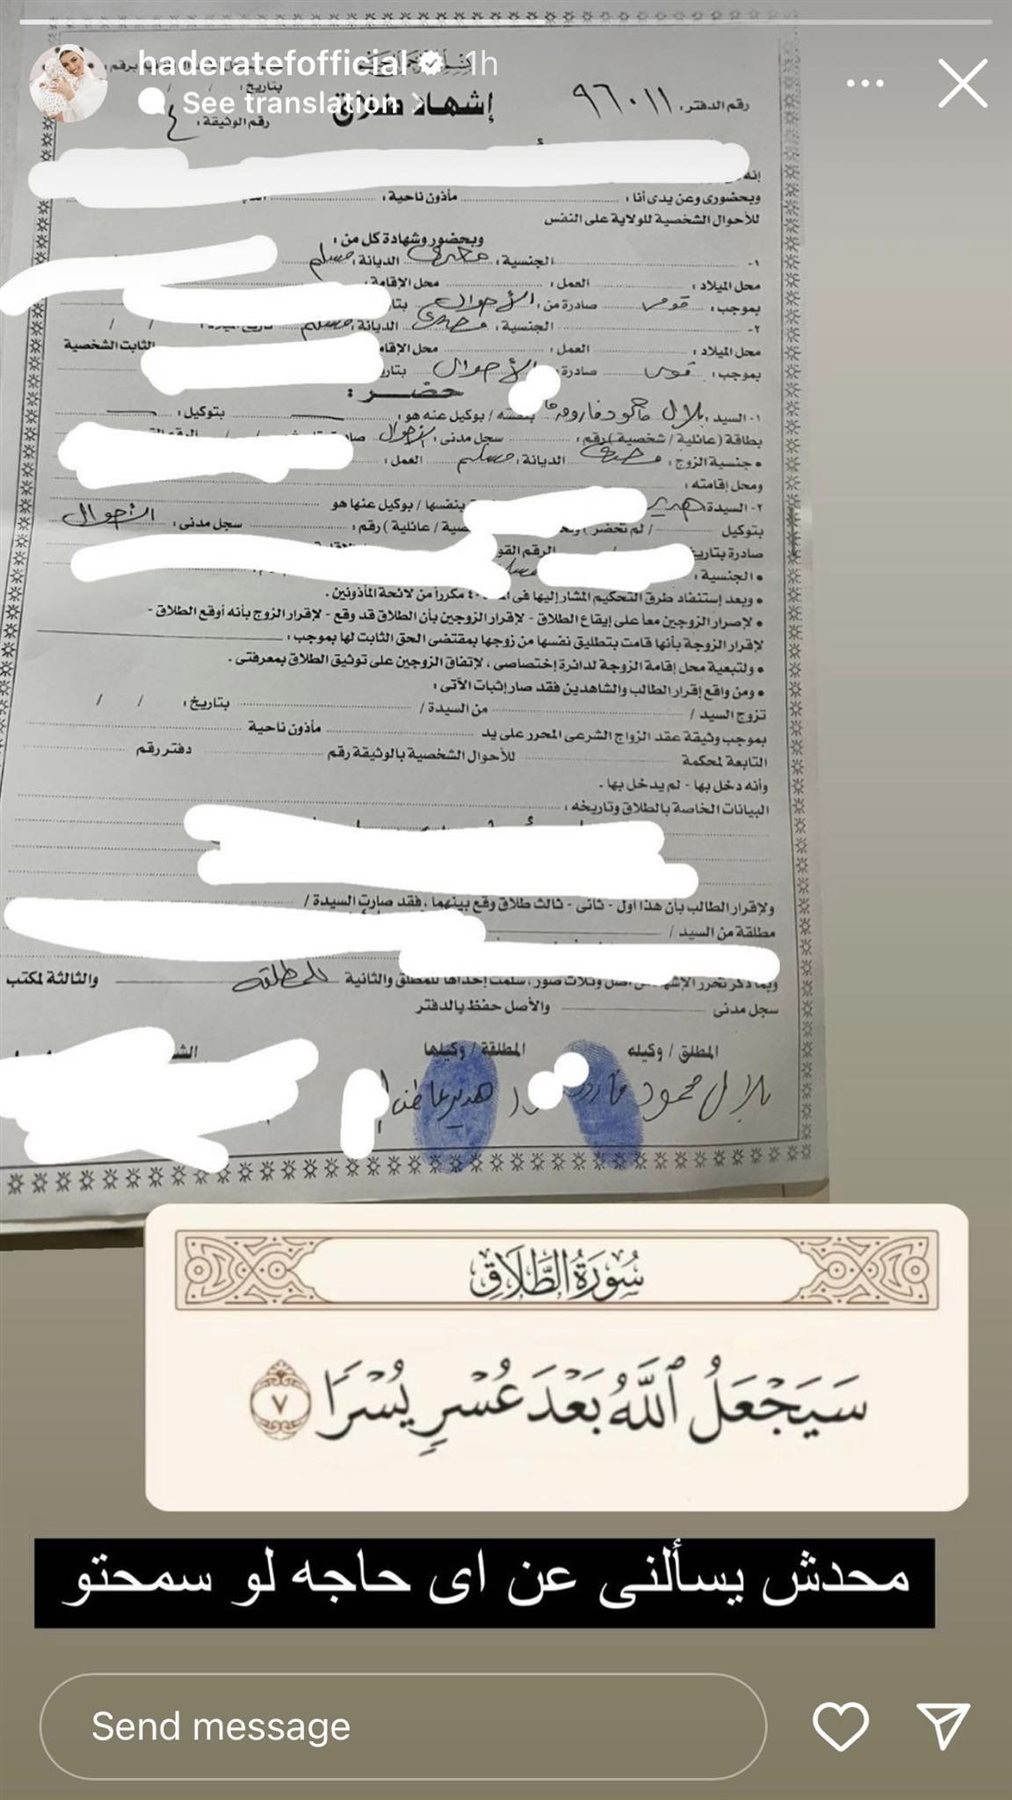 haderatefofficial 1h
See translation
بتاريخ: / /
إشهاد طلاق
رقم الدفتر: ٩٦٠١١
رقم الوثيقة: ٤
وبحضورى وعن يدى أنا: مأذون ناحية:
للأحوال الشخصية للولاية على النفس
وبحضور وشهادة كل من:
١- الجنسية: مصرى الديانة: مسلم
محل الميلاد: العمل: محل الإقامة:
بموجب: قومى صادرة من: الأحوال
٢- الجنسية: مصرى الديانة: مسلم
محل الميلاد: العمل: محل الإقامة الثابت الشخصية
بموجب: قومى صادرة الأحوال
حضر:
١- السيد: بلال محمود فاروق بنفسه / بوكيل عنه هو: بتوكيل:
بطاقة (عائلية / شخصية) رقم: سجل مدنى: الأحوال
• جنسية الزوج: مصرى الديانة: مسلم العمل:
ومحل إقامته:
٢- السيدة هدير بنفسها / بوكيل عنها هو
بتوكيل / لم تحضر عائلية) رقم: سجل مدنى: الأحوال
صادرة بتاريخ الرقم
• الجنسية:
• وبعد إستنفاد طرق التحكيم المشار إليها فى مكرراً من لائحة المأذونين.
• لإصرار الزوجين معاً على إيقاع الطلاق - لإقرار الزوجين بأن الطلاق قد وقع - لإقرار الزوج بأنه أوقع الطلاق -
لإقرار الزوجة بأنها قامت بتطليق نفسها من زوجها بمقتضى الحق الثابت لها بموجب:
• ولتبعية محل إقامة الزوجة لدائرة إختصاصى، لإتفاق الزوجين على توثيق الطلاق بمعرفتى.
• ومن واقع إقرار الطالب والشاهدين فقد صار إثبات الآتى:
تزوج السيد / من السيدة / بتاريخ: / /
بموجب وثيقة عقد الزواج الشرعى المحرر على يد مأذون ناحية
التابعة لمحكمة للأحوال الشخصية بالوثيقة رقم دفتر رقم
وأنه دخل بها - لم يدخل بها.
البيانات الخاصة بالطلاق وتاريخه:
ولإقرار الطالب بأن هذا اول - ثانى - ثالث طلاق وقع بينهما، فقد صارت السيدة /
مطلقة من السيد /
وبما ذكر تحرر الإشهاد من أصل وثلاث صور، سلمت إحداها للمطلق والثانية للمطلقة والثالثة لمكتب
سجل مدنى والأصل حفظ بالدفتر
المطلق / وكيله المطلقة / وكيلها
بلال محمود فاروق هدير عاطف
سُورَةُ الطَّلَاقِ
سَيَجْعَلُ ٱللَّهُ بَعْدَ عُسْرٍ يُسْرًا ٧
محدش يسألنى عن اى حاجه لو سمحتو
Send message